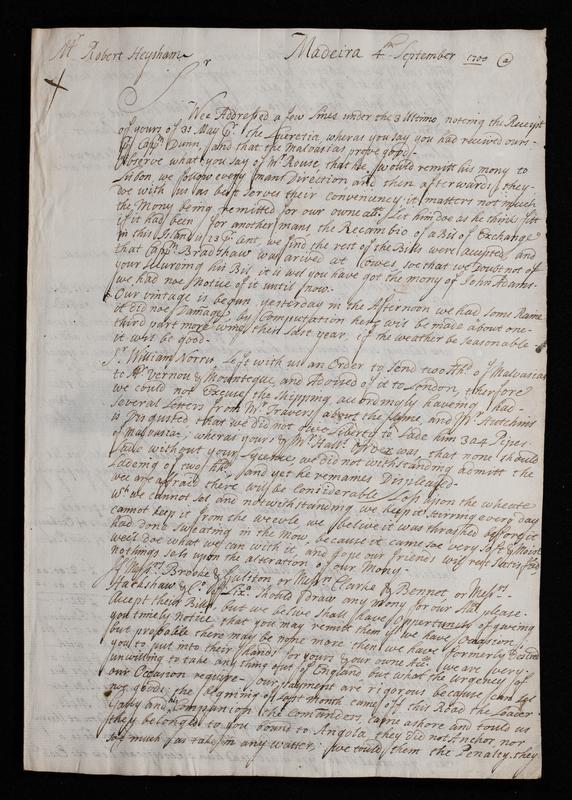 Mr Robert Heysham
Madeira 4th September 1700
Sr
Wee Addressed a few lines under the 3 Ultimo, noteing the Receipt
of yours of 31 May the Lucretia, wheras you say you had received ours
Capn Dunn, and that the Malvasias prove good
observe what you say of Mr Rouse, that he would remitt his mony to
Lisbon we follow every mans Direction, and then afterwards they
doe with us as best serves their conveniency, it matters not much
the Mony being remitted for our owne Let him doe as he thinks fitt
if it had been for another mans the Recambio of a Bil of Exchange
in this Island is 13 Cent, we find the rest of the Bills were accepted, and
that Capn Bradshaw was arrived at Cowes, soe that we doubt not of
your secureing his Bil, it is wel you have got the mony of John Adams
we had noe Notice of it until now.
Our vintage is begun yesterday in the Afternoon we had some Raine
it did noe Damage, by Computation here wil be made about one
third part more wine then last year, if the weather be seasonable
it wil be good
Sr William Norris Left with us an Order to Send two of Malvasias
to Mr Vernon & Mountegue, and Advised of it to London, therefore
we could not Excuse the Shipping, accordingly haveing had
several Letters from Mr Travers about the same, and Mr Hutchins
is Disgusted that we did not give Liberty to Lade him 3 a 4 Pipes
of Malvasia; wheras yours & Mr Halls Order was, that none should
Lade without your Lycence we did notwithstanding admitt the
Ladeing of two and yet he remaines Displeased
wee are afraid there wil be Considerable Loss upon the wheate
wch we cannot Sel and notwithstanding we keep it turning every day
cannot keep it from the weevle, we beleive it was thrashed before it
had done sweating in the Mow, because it came soe very Soft & Moist
weil doe what we can with it, and hope our friends wil rest Satisfied
nothings sels upon the alteration of our Mony
If Messrs Brooke & Gulston or Messrs Clarke & Bennet or Messrs
Hackshaw & Co should Draw any mony for our please
Accept their Bills, but we belive shall have oppertunity of giveing
you timely notice that you may remitt them if we have Occasion,
but probable there may be none more then we have formerly desired
you to put into their hands for yours & your owne we are very
unwilling to take any thing out of England but what the urgency of
our Occasion require our payment are rigorous because can Sel
noe goods; the begining of last month came off this Road the Leader
Gally and his Companion the Comanders, came ashore and tould us
they belonged to you bound to Angola, they did not Anchor nor
soe much as take in any watter, we tould them the Penalty, they